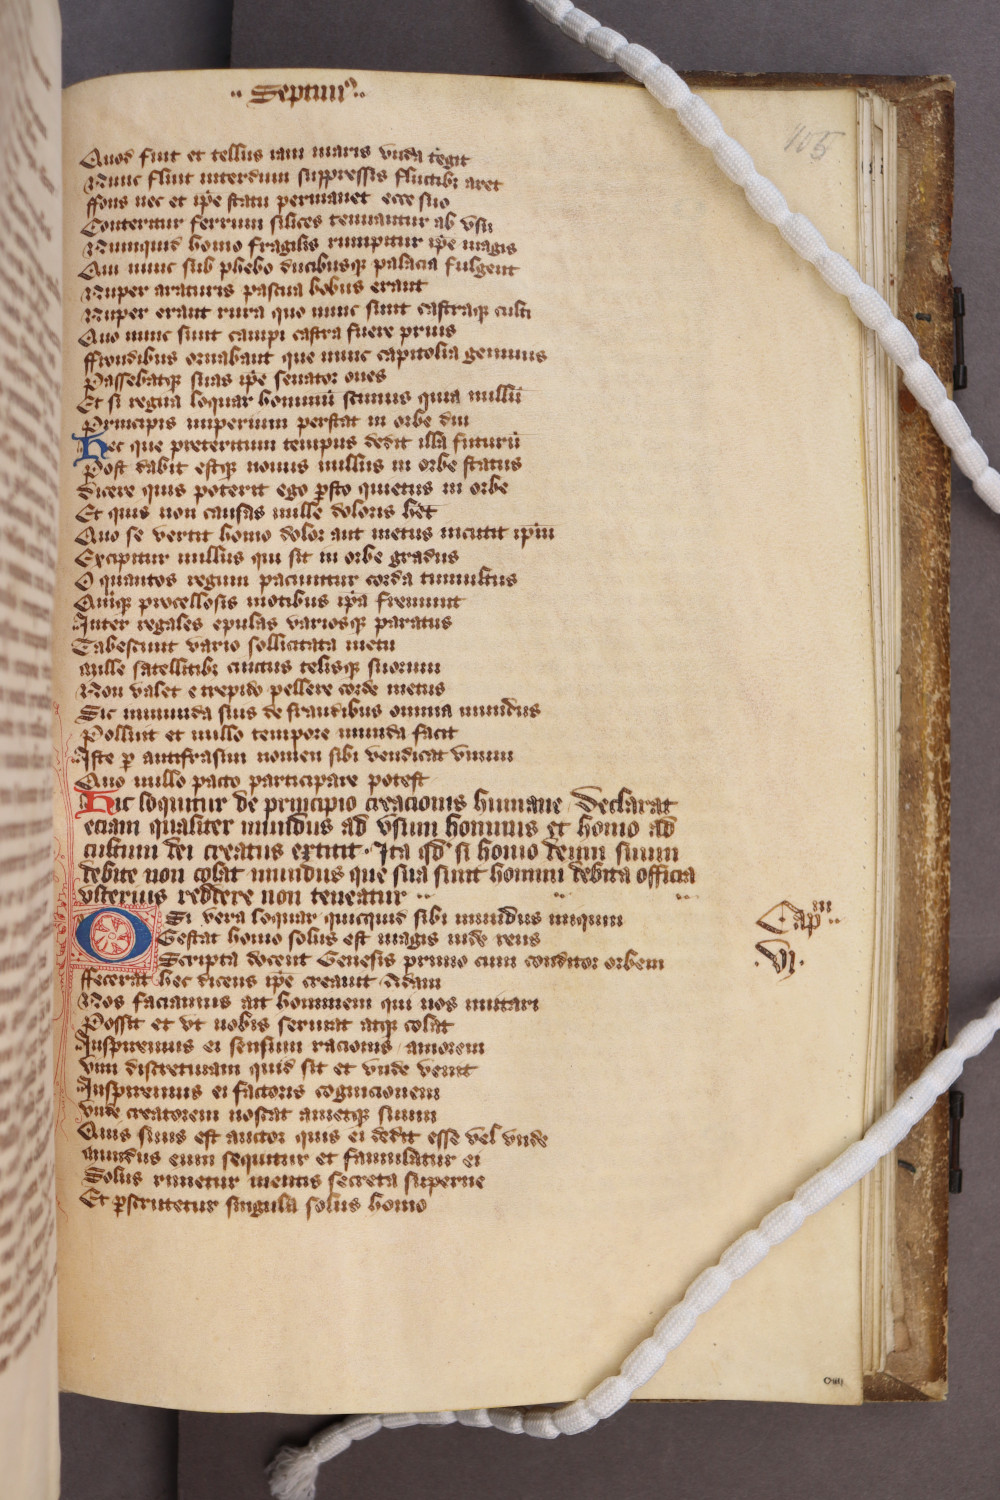 ·· Septimꝰ ··
105
Quod fuit et tellus iam maris vnda tegit
Nunc fluit interdum suppressis fluctibꝫ aret
ffons nec et ip̄e statu permanet ecce suo
Conteritur ferrum silices tenuantur ab vsu
Numquid homo fragilis rumpitur ip̄e magis
Qui nunc sub phebo ducibusqꝫ palacia fulgent
Nuper araturis pascua bobus erant
Nuper erant rura quo nunc sunt castraqꝫ culti
Quo nunc sunt campi castra fuere prius
ffrondibus ornabant que nunc capitolia gemmis
Passebatqꝫ suas ip̄e senator oues
Et si regna loquar hominū scimus quia nullū
Principis imperium perstat in orbe diu
Hec que preteritum tempus dedit illa futurū
Post dabit estqꝫ nouus nullus in orbe status
dicere quis poterit ego ꝑsto quietus in orbe
Et quis non causas mille doloris het̄
Quo se vertit homo dolor aut metus incutit ip̄m
Excipitur nullus qui sit in orbe gradus
O quantos regum paciuntur corda tumultus
Quiqꝫ procellosis motibus ip̄a fremunt
Inter regales epulas variosqꝫ paratus
Tabescunt vario sollicitata metu
mille satellitibꝫ cinctus telisqꝫ suorum
Non valet e trepido pellere corde metus
Sic immunda suis de fraudibus omnia mundus
Polluit et nullo tempore munda facit
Iste ꝑ antifrasim nomen sibi vendicat vnum
Quo nullo pacto participare potest
Hic loquitur de principio creacionis humane / Declarat
eciam qualiter mundus ad vsum hominis et homo ad
cultum dei creatus extitit · Ita qd̄ si homo deum suum
debite non colat mundus que sua sunt homini debita officia
vlterius reddere non teneatur ··
O Si vera loquar quicquid sibi mundus iniqum
Gestat homo solus est magis inde reus
Scripta docent Genesis primo cum conditor orbem
ffecerat hec dicens ip̄e creauit Adam
Nos faciamus ait hominem qui nos imitari
Possit et vt nobis seruiat atqꝫ colat
Inspiremus ei sensum racionis / amorem
vim discretiuam quid sit et vnde venit
Inspiremus ei factoris cognicionem
vnde creatorem noscat ametqꝫ suum
Quis suus est auctor quis ei dedit esse vel vnde
mundus eum sequitur et famulatur ei
Solus rimetur mentis secreta superne
Et ꝑscrutetur singula solus homo
Capᵐ ··
· vj ·